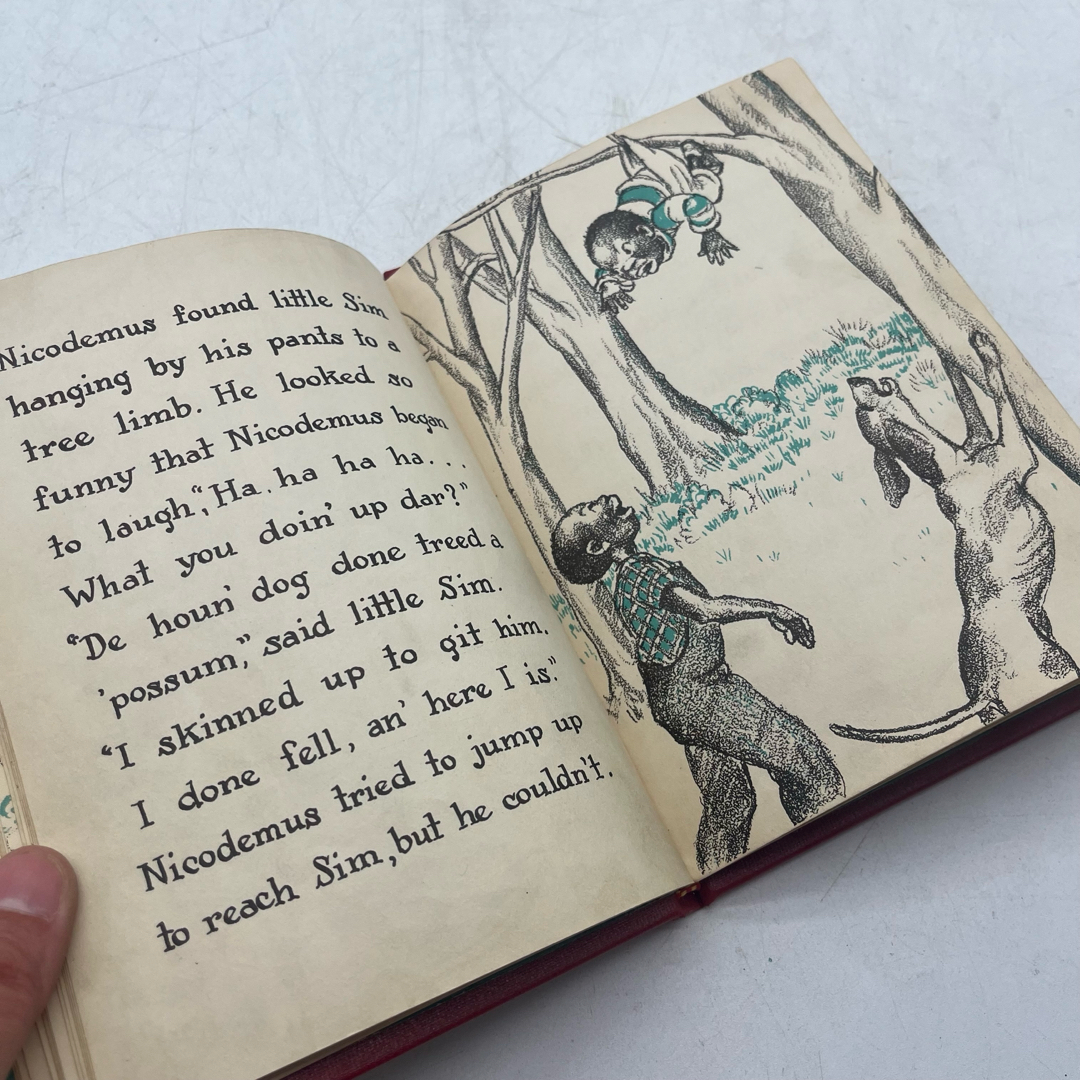 Nicodemus found little Sim
hanging by his pants to a
tree limb. He looked so
funny that Nicodemus began
to laugh, "Ha, ha ha ha. . .
What you doin' up dar?"
"De houn' dog done treed a
'possum," said little Sim.
"I skinned up to git him.
I done fell, an' here I is."
Nicodemus tried to jump up
to reach Sim, but he couldn't.